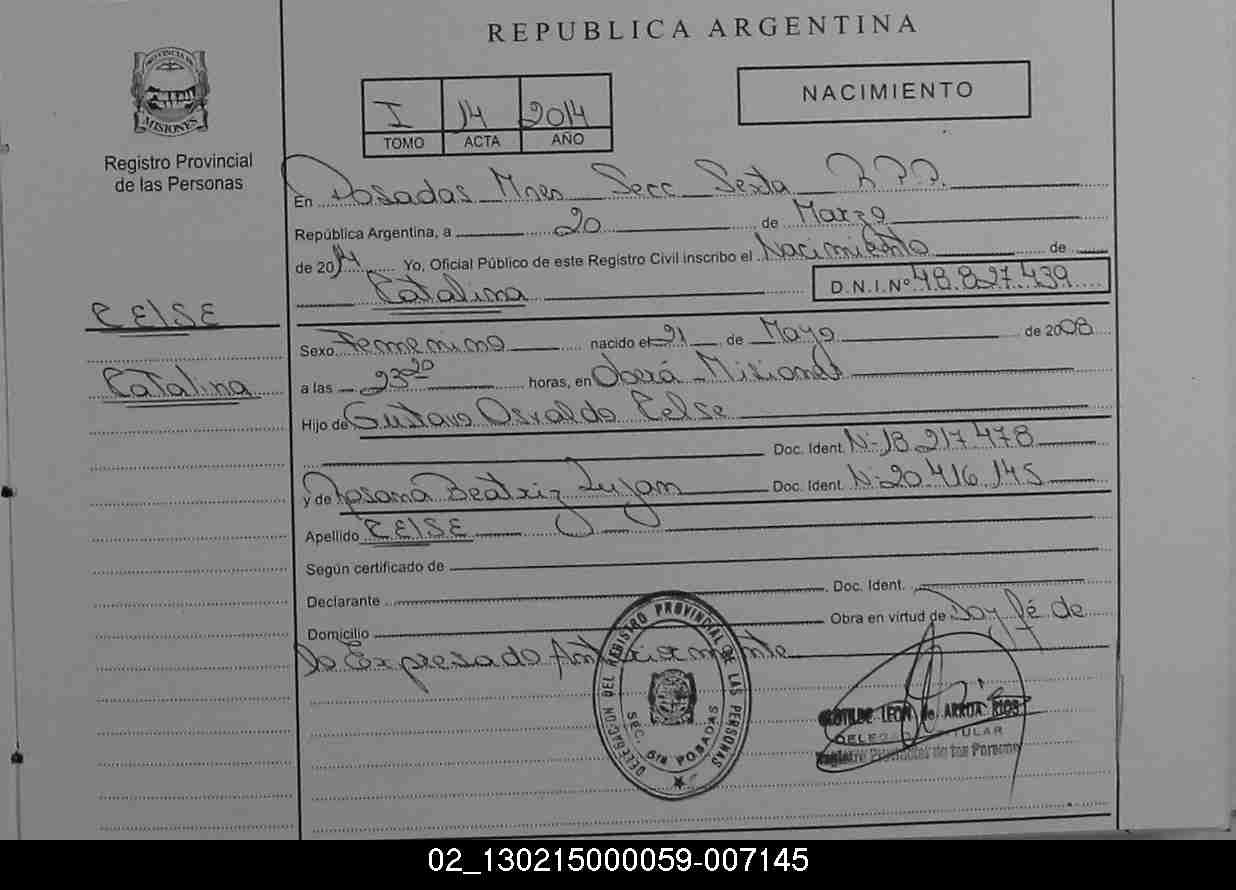 REPUBLICA ARGENTINA
PROVINCIA DE
MISIONES
Registro Provincial
de las Personas
I 14 2014
TOMO ACTA AÑO
NACIMIENTO
En Posadas Mnes Secc Sexta R.P.P.
República Argentina, a 20 de Marzo
de 2014 Yo, Oficial Público de este Registro Civil inscribo el Nacimiento de
Catalina D.N.I.Nº 48.827.439
CELSE
Catalina
Sexo Femenino nacido el 21 de Mayo de 2008
a las 23 20 horas, en Oberá Misiones
Hijo de Gustavo Osvaldo Celse
Doc. Ident. Nº 18.217.478
y de Rosana Beatriz Lujan Doc. Ident. Nº 20.416.145
Apellido CELSE
Según certificado de
Declarante Doc. Ident.
Domicilio Obra en virtud de Doy fé de
lo Expresado Anteriormente
DELEGACION DEL REGISTRO PROVINCIAL DE LAS PERSONAS
SEC. 6ta POSADAS
CLOTILDE LEON de ARRUA RIOS
DELEGADA TITULAR
Registro Provincial de las Personas
02_130215000059-007145